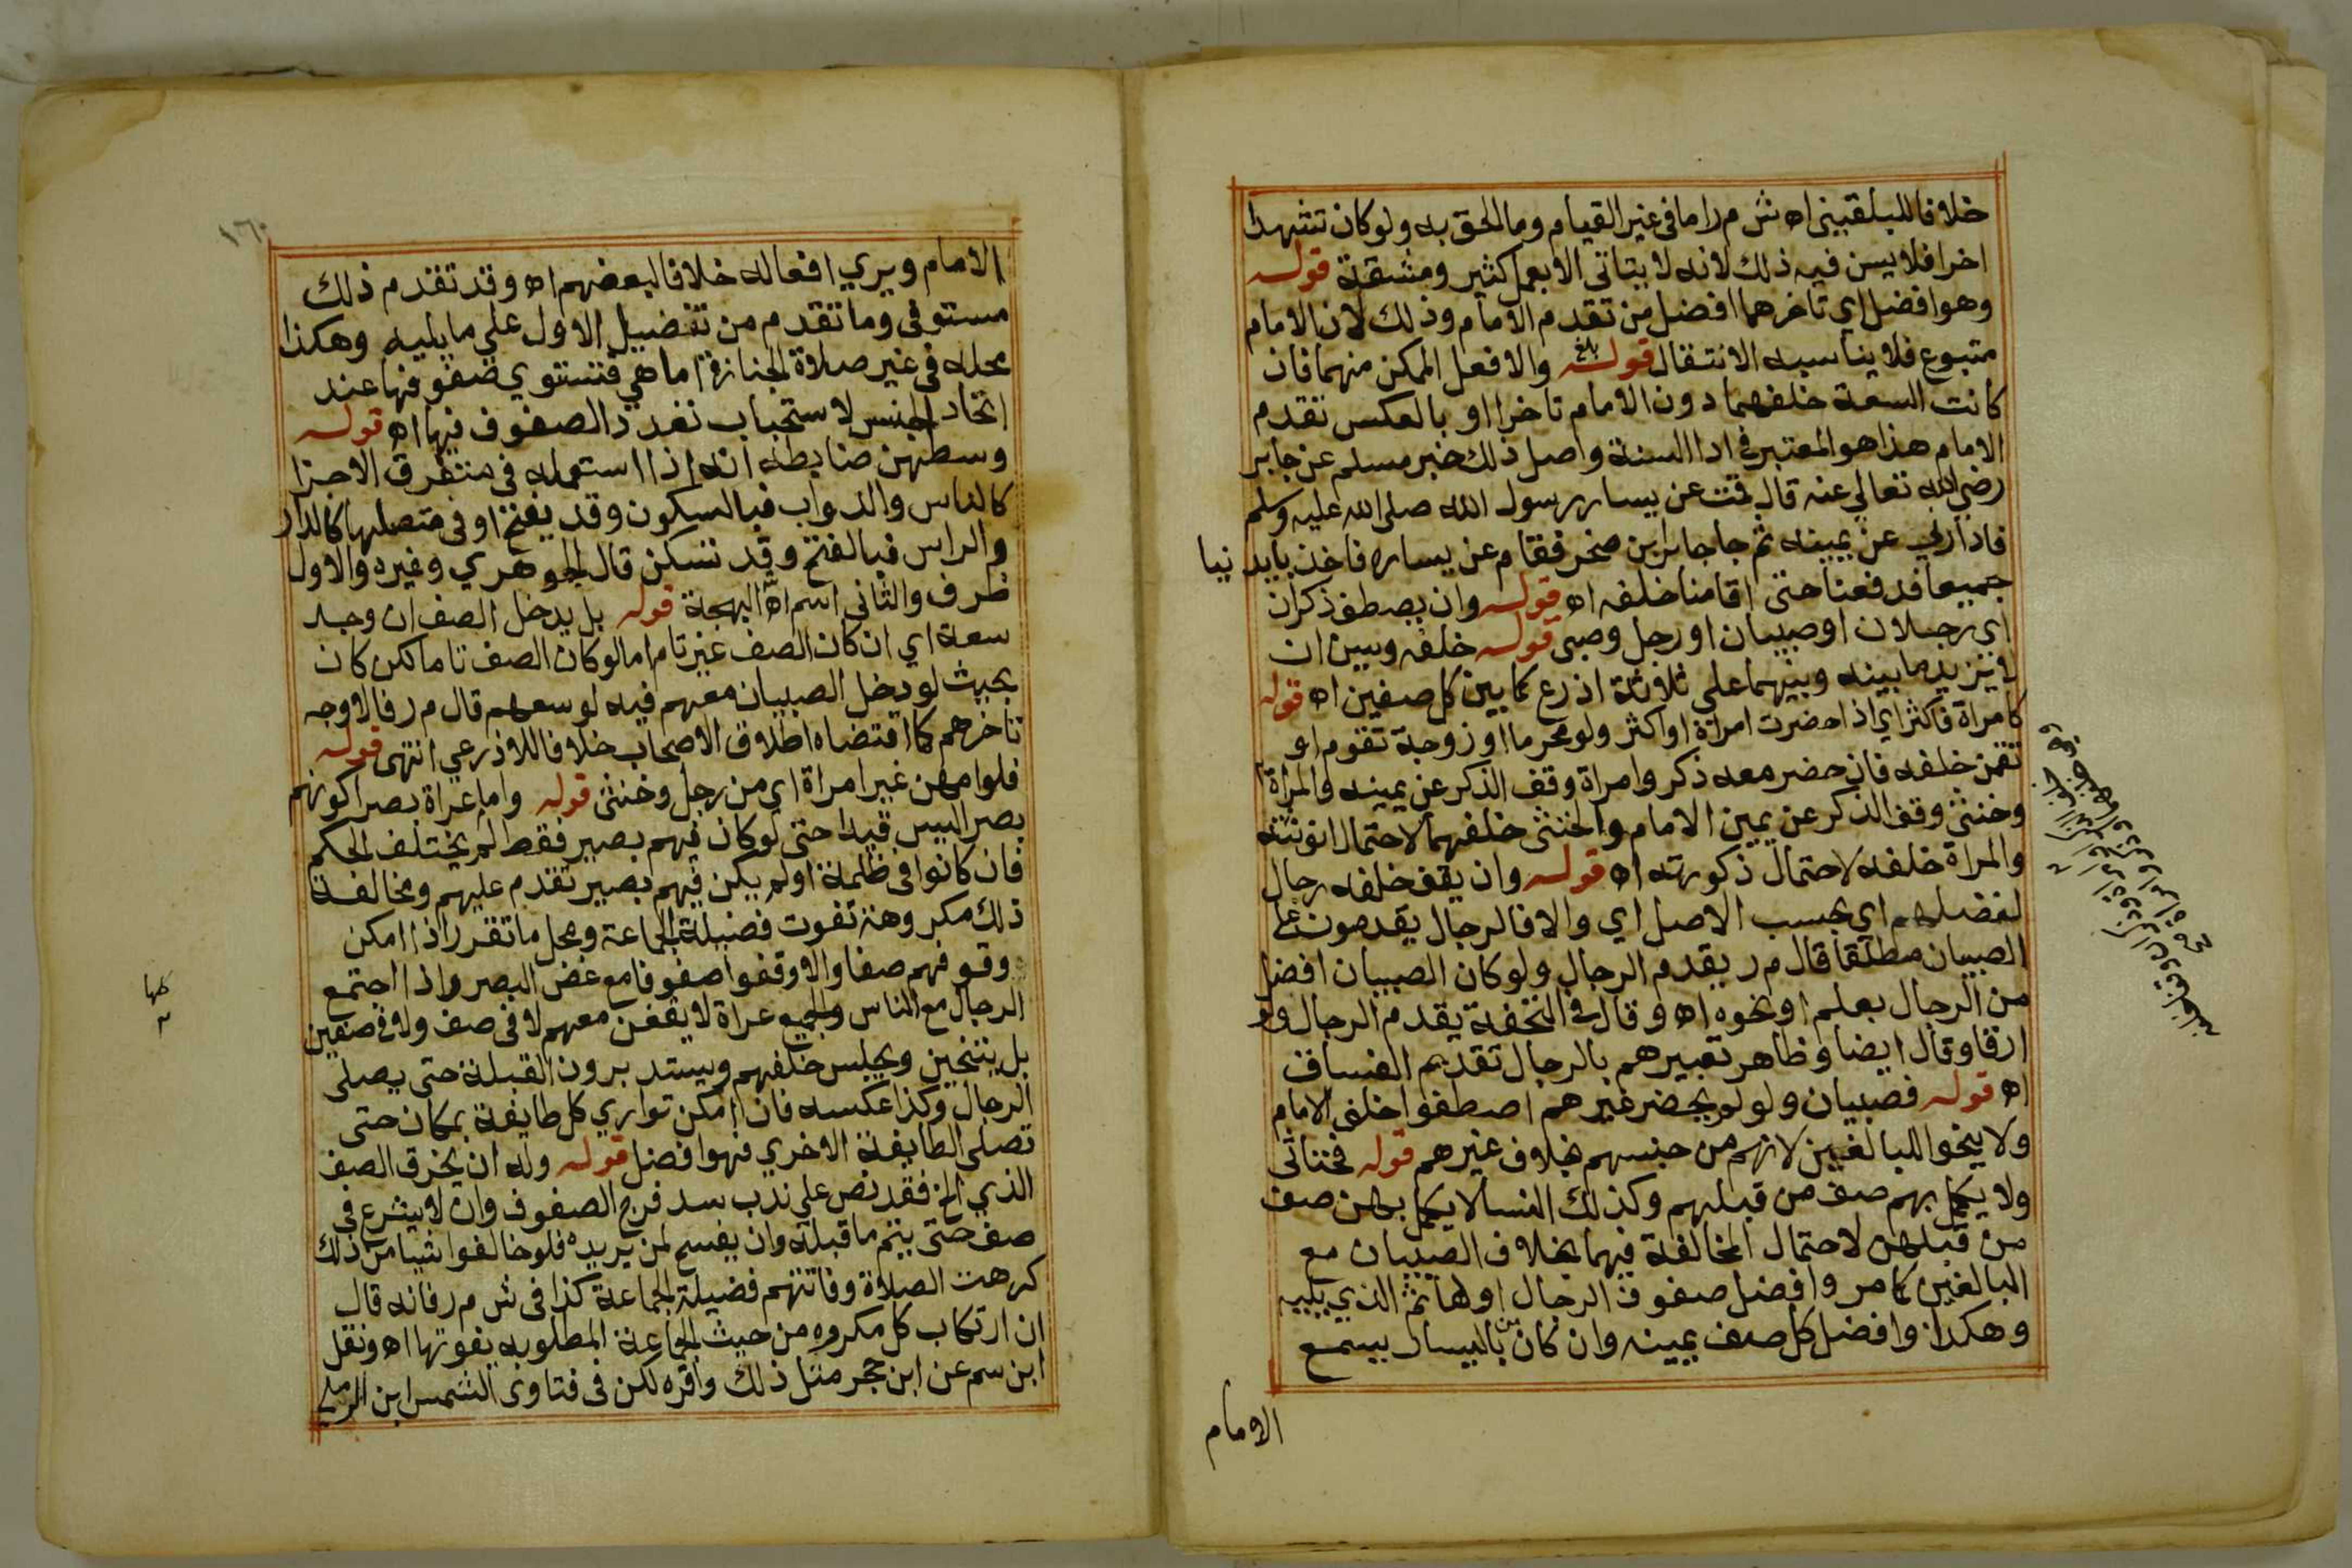 خلافا للبلقيني اه ش م ر اما في غير القيام وما الحق به ولو كان تشهدا
اخرا فلا يسن فيه ذلك لانه لا يتاتى الا بعمل كثير ومشقة قوله
وهو افضل اي تاخرهما افضل من تقدم الامام وذلك لان الامام
متبوع فلا يناسبه الانتقال قوله والا فعل الممكن منهما فان
كانت السعة خلفهما دون الامام تاخرا او بالعكس تقدم
الامام هذا هو المعتبر في ادا السنة واصل ذلك خبر مسلم عن جابر
رضي الله تعالي عنه قال قمت عن يسار رسول الله صلى الله عليه وسلم
فادارني عن يمينه ثم جا جابر بن صخر فقام عن يساره فاخذ بايدينا
جميعا فدفعنا حتى اقامنا خلفه اه قوله وان يصطف ذكران
اي رجلان او صبيان او رجل وصبى قوله خلفه ويسن ان
لا يزيد ما بينه وبينهما على ثلاثة اذرع كما بين كل صفين اه قوله
كامراة فاكثر اي اذا حضرت امراة او اكثر ولو محرما او زوجة تقوم او
تقمن خلفه فان حضر معه ذكر وامراة وقف الذكر عن يمينه والمراة
وخنثى وقف الذكر عن يمين الامام والخنثى خلفهما لاحتمال انوثته
والمراة خلفه لاحتمال ذكورته اه قوله وان يقف خلفه رجال
لفضلهم اي بحسب الاصل اي والا فالرجال يقدمون على
الصبيان مطلقا قال م ر يقدم الرجال ولو كان الصبيان افضل
من الرجال بعلم او نحوه اه وقال في التحفة يقدم الرجال ولو
ارقا وقال ايضا وظاهر تعبيرهم بالرجال تقديم الفساق
اه قوله فصبيان ولو لم يحضر غيرهم اصطفوا خلف الامام
ولا ينحوا للبالغين لانهم من جنسهم بخلاف غيرهم قوله فخناثى
ولا يكمل بهم صف من قبلهم وكذلك النسا لا يكمل بهن صف
من قبلهن لاحتمال المخالفة فيهما بخلاف الصبيان مع
البالغين كما مر وافضل صفوف الرجال اولها ثم الذي يليه
وهكذا وافضل كل صف يمينه وان كان من باليسار يسمع
الامام
١٦٠
الامام ويري افعاله خلافا لبعضهم اه وقد تقدم ذلك
مستوفى وما تقدم من تفضيل الاول علي ما يليه وهكذا
محله في غير صلاة الجنازة اما هي فتستوي صفوفها عند
اتحاد الجنس لاستحباب تعدد الصفوف فيها اه قوله
وسطهن ضابطه انه اذا استعمله في متفرق الاجزا
كالناس والدواب فبالسكون وقد يفتح او في متصلها كالدار
والراس فبالفتح وقد تسكن قال الجوهري وغيره والاول
ظرف والثاني اسم اه البهجة قوله بل يدخل الصف ان وجد
سعة اي ان كان الصف غير تام اما لو كان الصف تاما لكن كان
بحيث لو دخل الصبيان معهم فيه لوسعهم قال م ر فالاوجه
تاخرهم كما اقتضاه اطلاق الاصحاب خلافا للاذرعي انتهى قوله
فلو امهن غير امراة اي من رجل وخنثى قوله واما عراة بصرا كونهم
بصرا ليس قيدا حتى لو كان فيهم بصير فقط لم يختلف الحكم
فان كانوا في ظلمة او لم يكن فيهم بصير تقدم عليهم ومخالفة
ذلك مكروهة تفوت فضيلة الجماعة ومحل ما تقرر اذا امكن
وقوفهم صفا والا وقفوا صفوفا مع غض البصر واذا اجتمع
الرجال مع الناس والجميع عراة لا يقفن معهم لا في صف ولا في صفين
بل يتنحين ويجلس خلفهم ويستدبرون القبلة حتى يصلى
الرجال وكذا عكسه فان امكن تواري كل طايفة بمكان حتى
تصلى الطايفة الاخري فهو افضل قوله وله ان يخرق الصف
الذي الخ فقد نص على ندب سد فرج الصفوف وان لا يشرع في
صف حتى يتم ما قبله وان يفسح لمن يريده فلو خالفوا شيا من ذلك
كرهت الصلاة وفاتتهم فضيلة الجماعة كذا في ش م ر فانه قال
ان ارتكاب كل مكروه من حيث الجماعة المطلوبه يفوتها اه ونقل
ابن سم عن ابن حجر مثل ذلك واقره لكن في فتاوى الشمس ابن الرملي